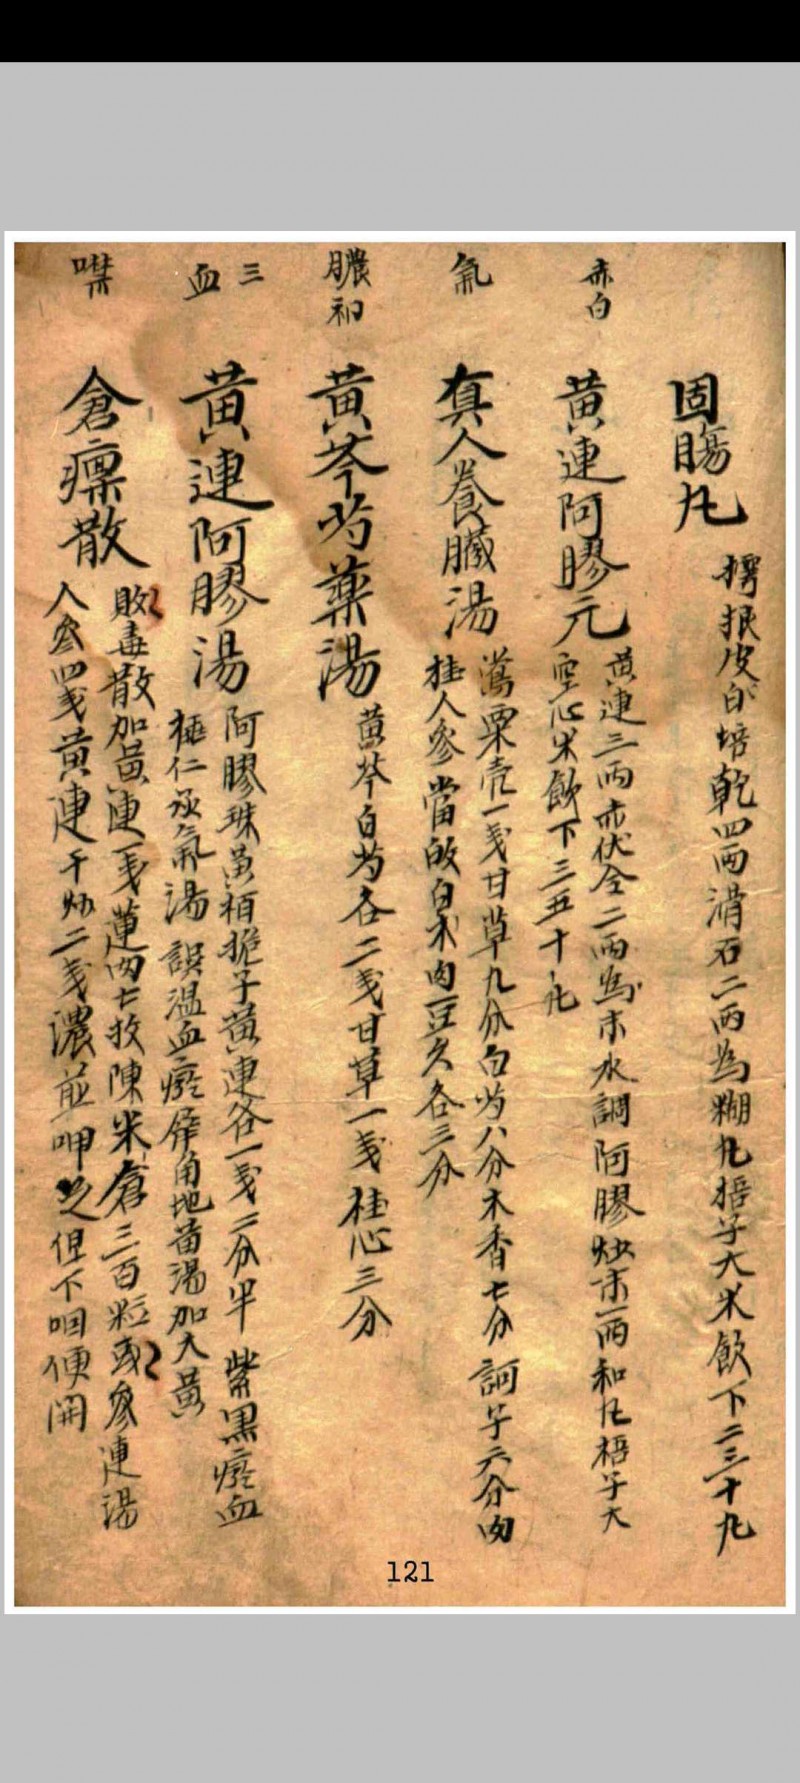 固腸丸
樗根皮白培乾四兩滑石二兩為糊丸梧子大米飲下二三十丸
赤白
黃連阿膠元
黃連三兩赤伏令二兩為末水調阿膠炒末一兩和丸梧子大
空心米飲下三五十丸
氣
真人養臟湯
鶯栗壳一戔甘草九分白芍八分木香七分訶子六分肉
桂人參當故白朮肉豆久各三分
膿初
黃芩芍藥湯
黃芩白芍各二戔甘草一戔桂心三分
三血
黃連阿膠湯
阿膠珠黃栢梔子黃連各一戔二分半 紫黑瘀血
桃仁承氣湯 誤溫血瘀犀角地黃湯加大黃
噤
倉廩散
敗毒散加黃連一戔蓮肉七枚陳米倉三百粒或參連湯
人參四戔黃連干炒二戔濃煎呷之但下咽便開
121